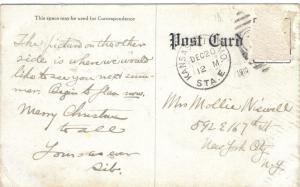 This space may be used for Correspondence
Post Card
The picture on the other
side is where we would
like to see you next sum-
mer. Begin to plan now.
Merry Christmas
to all
Yours as ever
Sib.
KANSAS
DEC 20
12 M
STA. E
Mrs Mollie Niswell
892 E 167th St
New York City
N.Y.